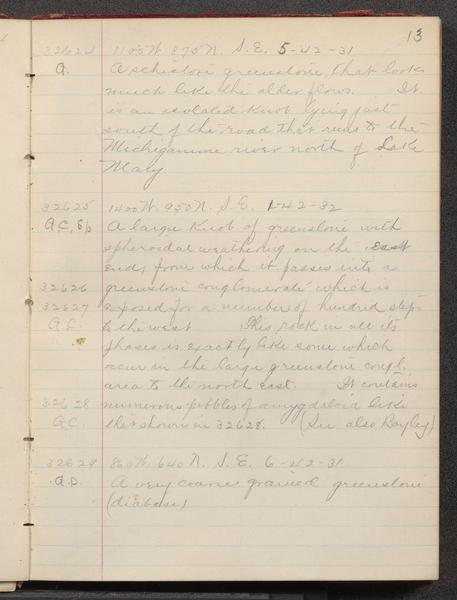 13
32624 1100 W. 870 N. S.E. 5-42-31
A. A schistose greenstone, that looks
much like the older flows. It
is an isolated knob lying just
south of the road that runs to the
Michigamme river north of Lake
Mary
32625 1400 W. 950 N. S.E. 1-42-32
A, C, Sp A large knob of greenstone with
spheroidal weathering on the east
end, from which it passes into a
32626 greenstone conglomerate which is
32627 exposed for a number of hundred steps
A.C. to the west This rock in all its
phases is exactly like some which
occur in the large greenstone congl.
area to the north east. It contains
32628 numerous pebbles of amygdaloid like
A.C. that shown in 32628. (See also Bayley)
32629 860 W. 640 N. S.E. 6-42-31
A.D. A very coarse grained greenstone
(diabase)